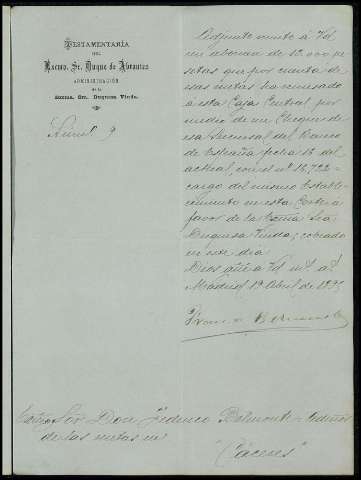 TESTAMENTARÍA
DEL
Excmo. Sr. Duque de Abrantes
ADMINISTRACIÓN
de la
Excma. Sra. Duquesa Viuda.
Núm.º 9
Adjunto remito á Vd
un abonaré de 12.000 pe
setas que por cuenta de
esas rentas ha remesado
á esta Caja Central por
medio de un Cheque de
esa Sucursal del Banco
de España fecha 16 del
actual, con el nº 16,722
cargo del mismo Estable-
cimiento en esta Corte á
favor de la Excma Sra
Duquesa Viuda; cobrado
en este dia.
Dios gūe á Vd m.s a.s
Madrid 19 Abril de
Sor Don Federico Belmonte
de las rentas en
"Cáceres"